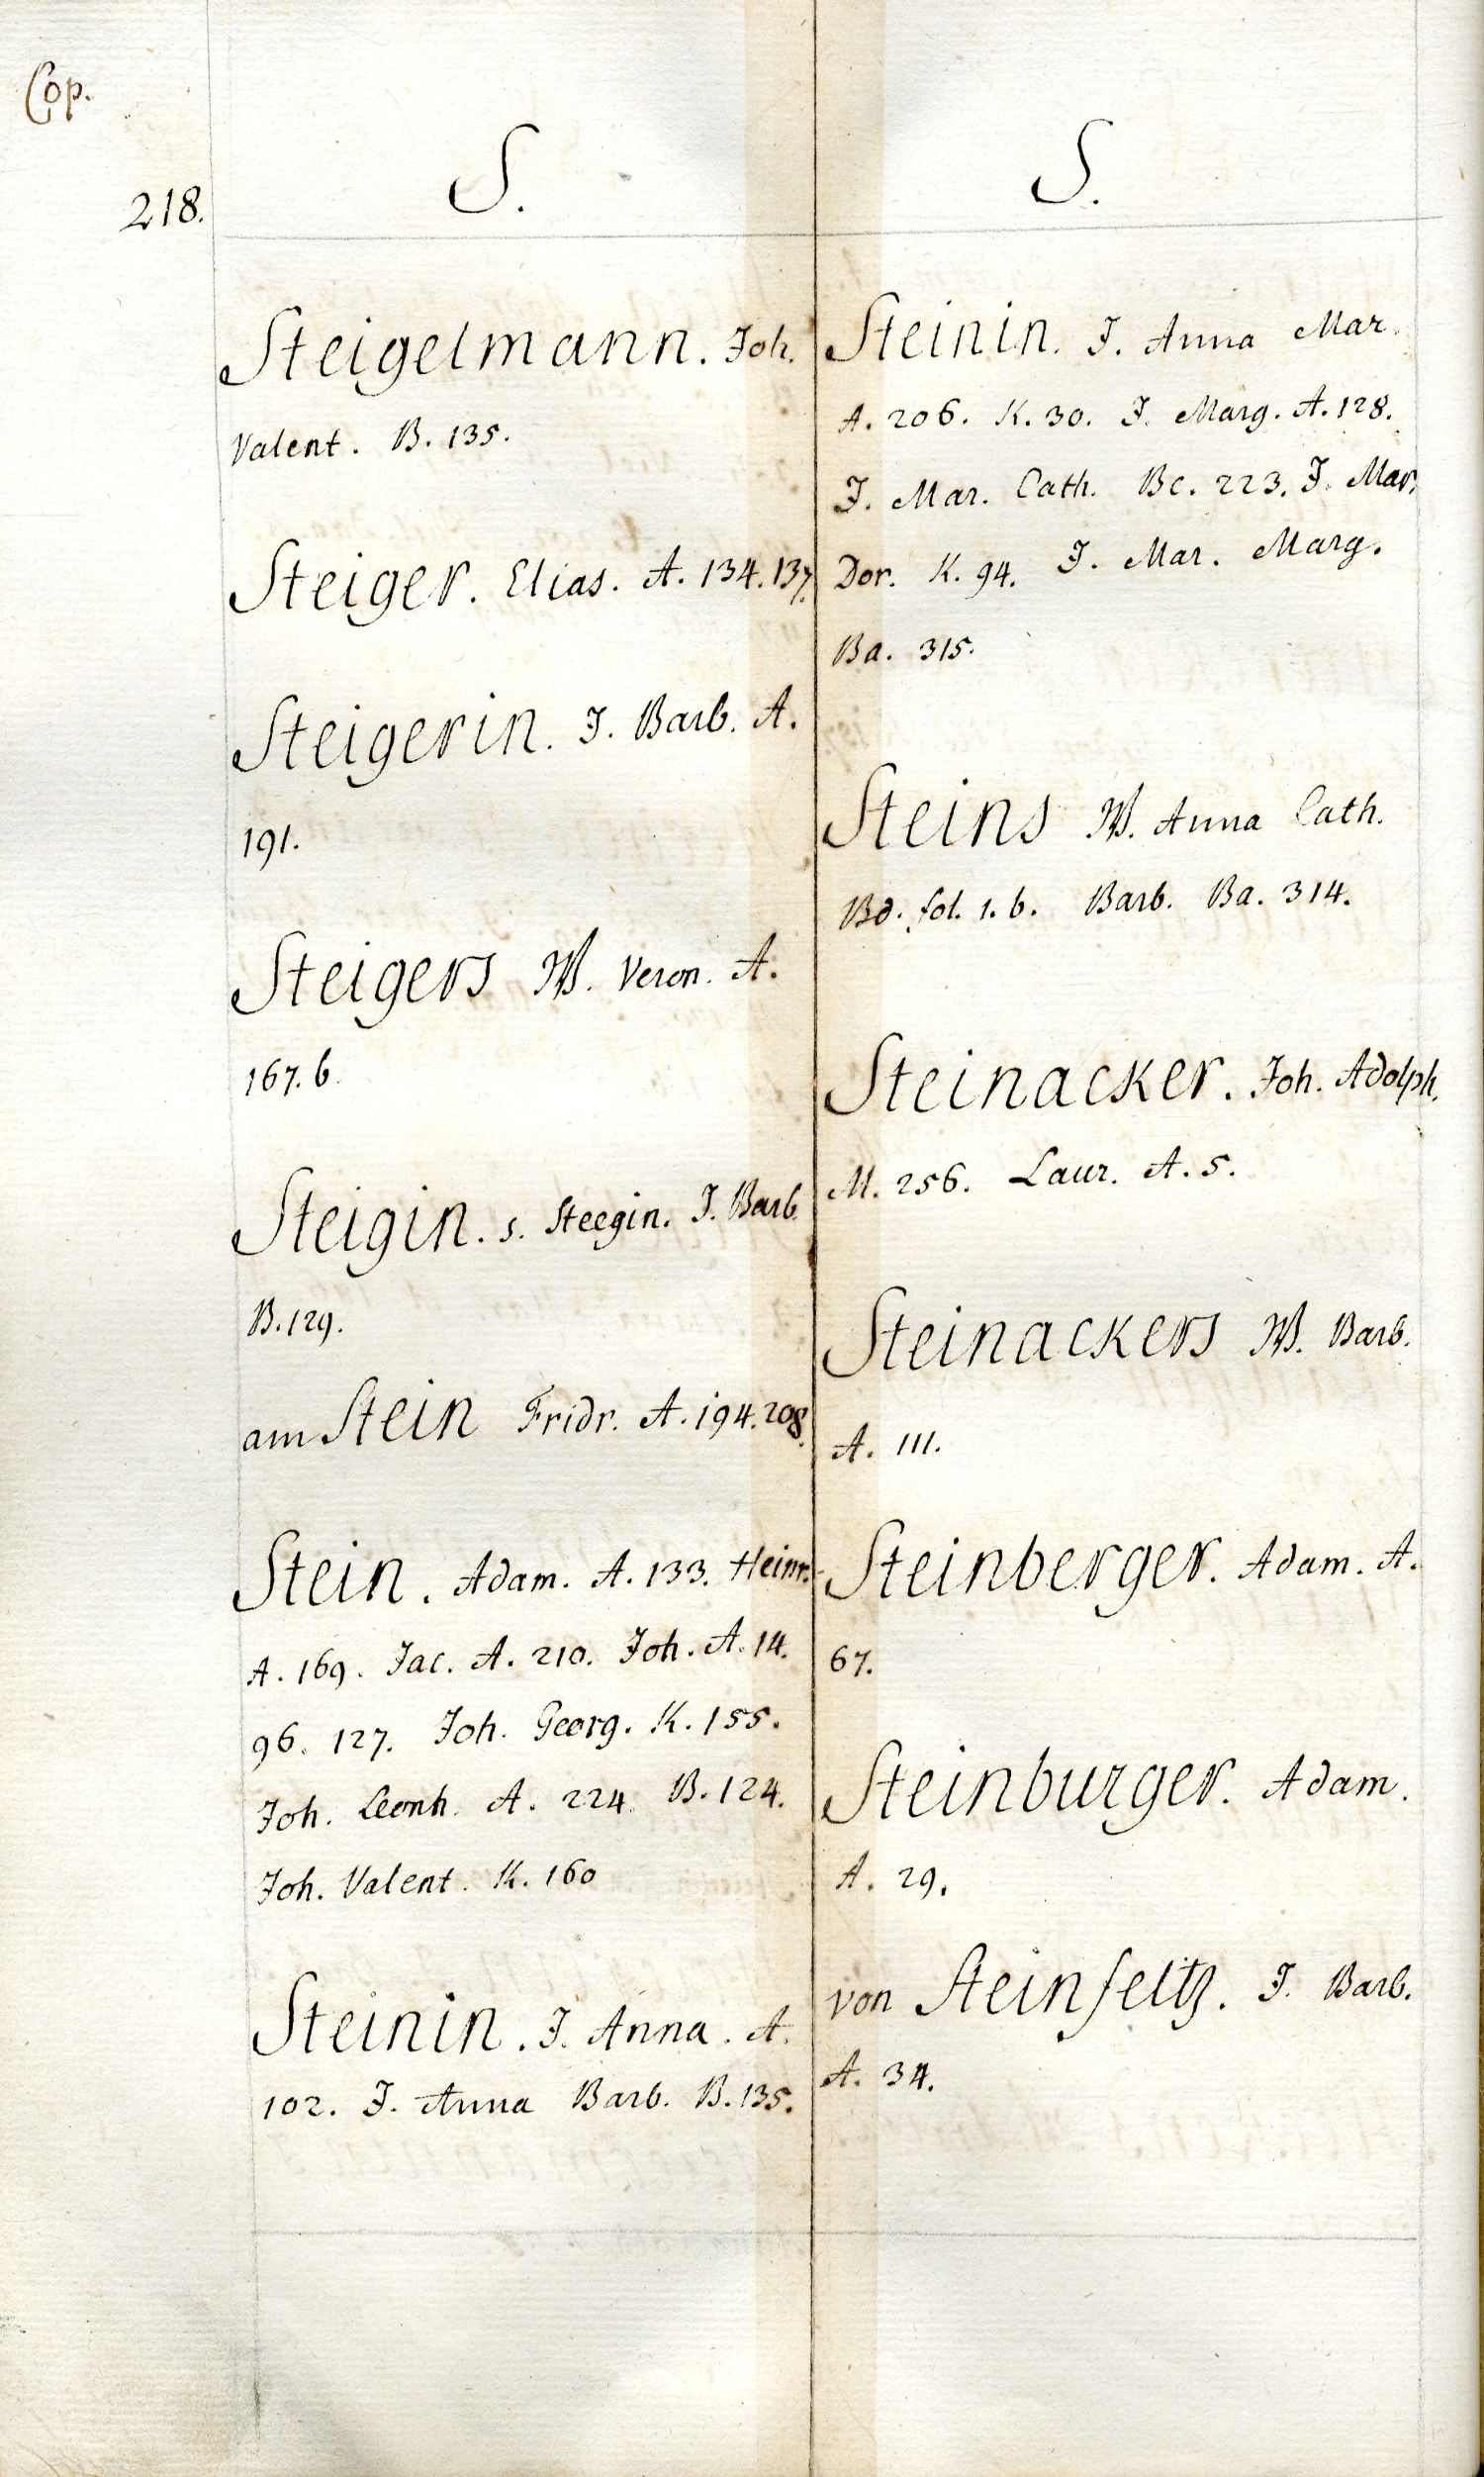 Cop.
218.
S.
Steigelmann. Joh.
Valent. B. 135.
Steiger. Elias. A. 134. 137.
Steigerin. J. Barb. A.
191.
Steigers W. Veron. A.
167. b.
Steigin. s. Steegin. J. Barb.
B. 129.
am Stein Fridr. A. 194. 208.
Stein. Adam. A. 133. Heinr.
A. 169. Jac. A. 210. Joh. A. 14.
96. 127. Joh. Georg. K. 155.
Joh. Leonh. A. 224. B. 124.
Joh. Valent. K. 160
Steinin. J. Anna. A.
102. J. Anna Barb. B. 135.
S.
Steinin. J. Anna Mar.
A. 206. K. 30. J. Marg. A. 128.
J. Mar. Cath. Bc. 223. J. Mar.
Dor. K. 94. J. Mar. Marg.
Ba. 315.
Steins W. Anna Cath.
Bd. fol. 1. b. Barb. Ba. 314.
Steinacker. Joh. Adolph.
M. 256. Laur. A. 5.
Steinackers W. Barb.
A. 111.
Steinberger. Adam. A.
67.
Steinburger. Adam.
A. 29.
von Steinfeltz. J. Barb.
A. 34.